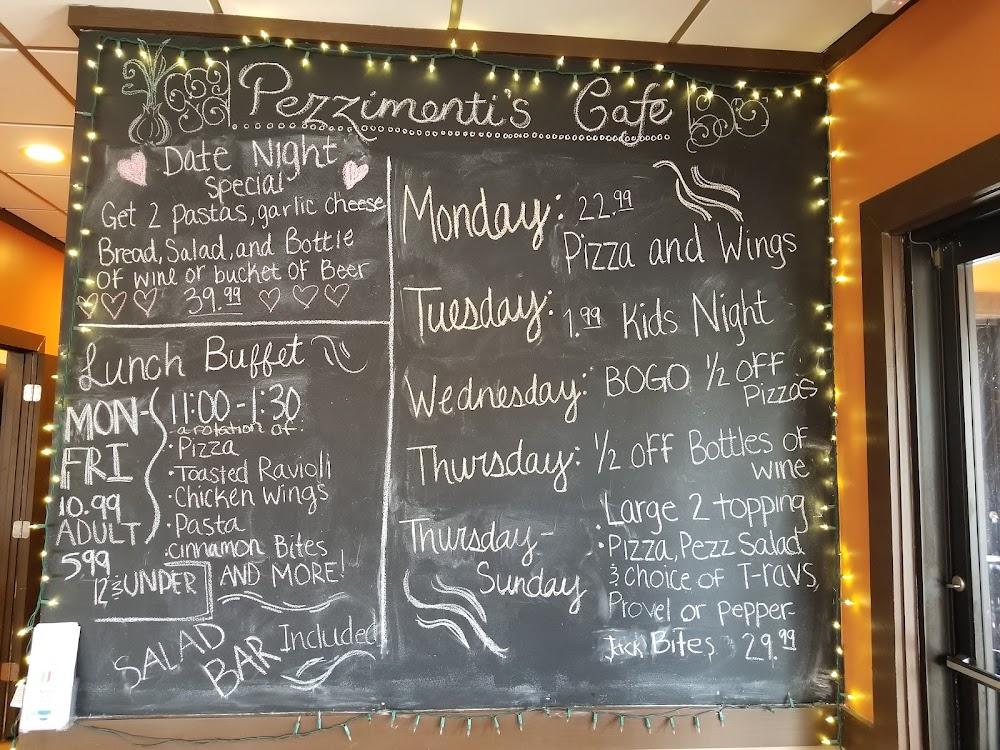 Pezzimenti's Cafe
Date Night
Special
Get 2 pastas, garlic cheese
Bread, Salad, and Bottle
of wine or bucket of Beer
39.99
Lunch Buffet
MON-
FRI
10.99
ADULT
5.99
12 & UNDER
11:00-1:30
a rotation of:
• Pizza
• Toasted Ravioli
• Chicken Wings
• Pasta
• cinnamon Bites
AND MORE!
SALAD
BAR Included
Monday: 22.99
Pizza and Wings
Tuesday: 1.99 Kids Night
Wednesday: BOGO 1/2 OFF
Pizzas
Thursday: 1/2 OFF Bottles of
wine
Thursday-
Sunday
• Large 2 topping
• Pizza, Pezz Salad
& choice of T-ravs,
Provel or Pepper-
jack Bites 29.99